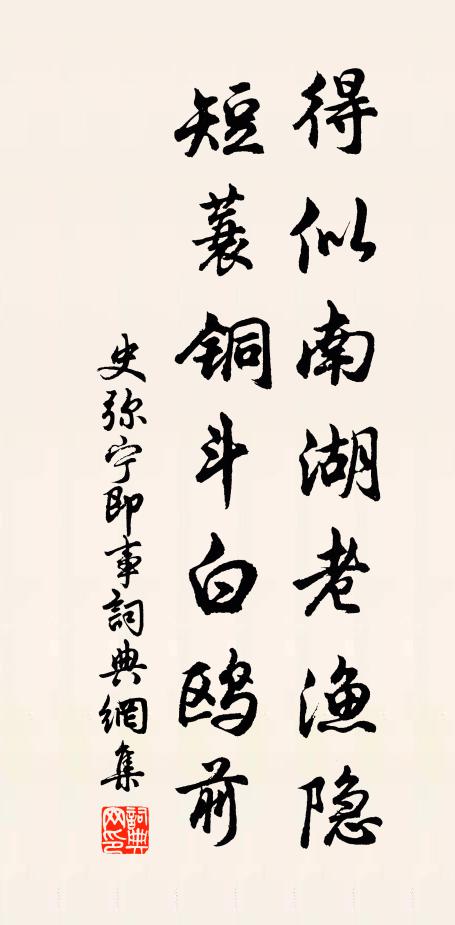 得似南湖老渔隐
短蓑铜斗白鸥前
史弥宁即事詞典網集
詞典网印